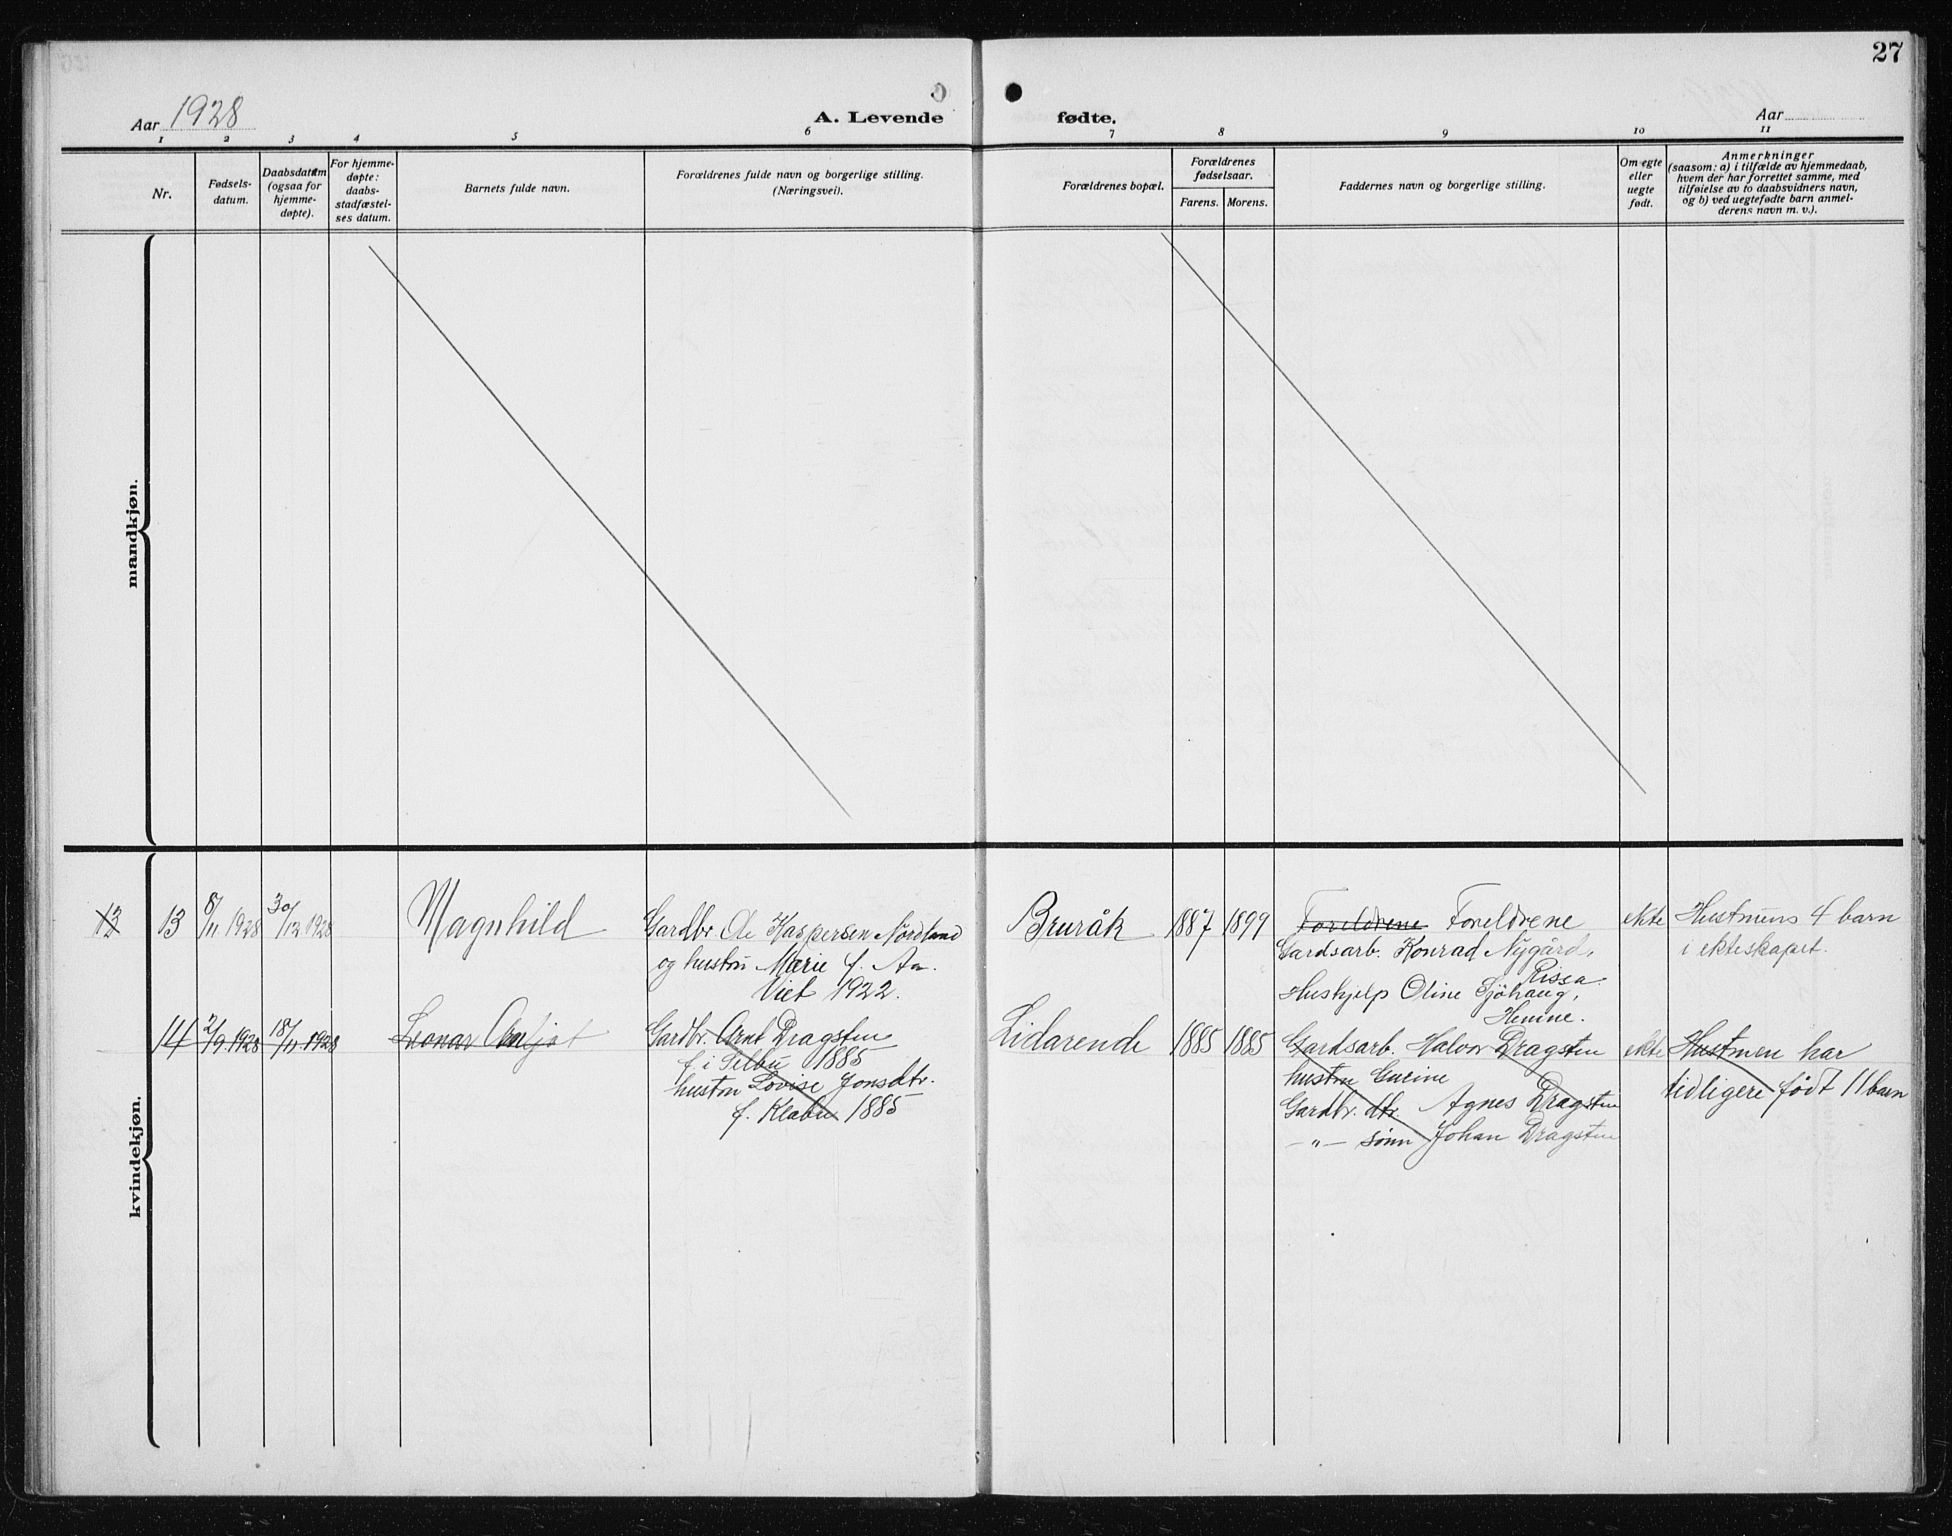 27
Aar 1928
A. Levende
fødte.
Aar
1 2 3 4 5 6 7 8 9 10 11
Nr.
Fødsels-
datum.
Daabsdatum
(ogsaa for
hjemme-
døpte).
For hjemme-
døpte:
daabs-
stadfæstel-
ses datum.
Barnets fulde navn.
Forældrenes fulde navn og borgerlige stilling.
(Næringsvei).
Forældrenes bopæl.
Forældrenes
fødselsaar.
Farens. Morens.
Faddernes navn og borgerlige stilling.
Om egte
eller
uegte
født.
Anmerkninger
(saasom: a) i tilfælde av hjemmedaab,
hvem der har forrettet samme, med
tilføielse av to daabsvidners navn,
og b) ved uegtefødte barn anmel-
derens navn m. v.).
mandkjøn.
kvindekjøn.
13 8/11 1928 30/12 1928
Magnhild
Gardbr. Ole Kaspersen Nordland
og hustru Marie f. Aa.
Viet 1922.
Bruråk
1887 1899
Foreldrene Foreldrene
Gardsarb. Konrad Nygård,
Rissa.
Huskjelp Oline Sjöhaug,
Hemne.
ekte
Hustruns 4 barn
i ekteskapet.
14 2/9 1928 18/11 1928
Leonar
Gardbr. Arnt Dragsten
f. i Selbu 1885
hustru Lovise Jonsdtr.
f. Klæbu 1885
Lidarende
1885 1885
Gardsarb. Halvor Dragsten
hustru Gurine
Gardbr. dtr. Agnes Dragsten
—„— sønn Johan Dragsten
ekte
Hustruen har
tidligere født 11 barn